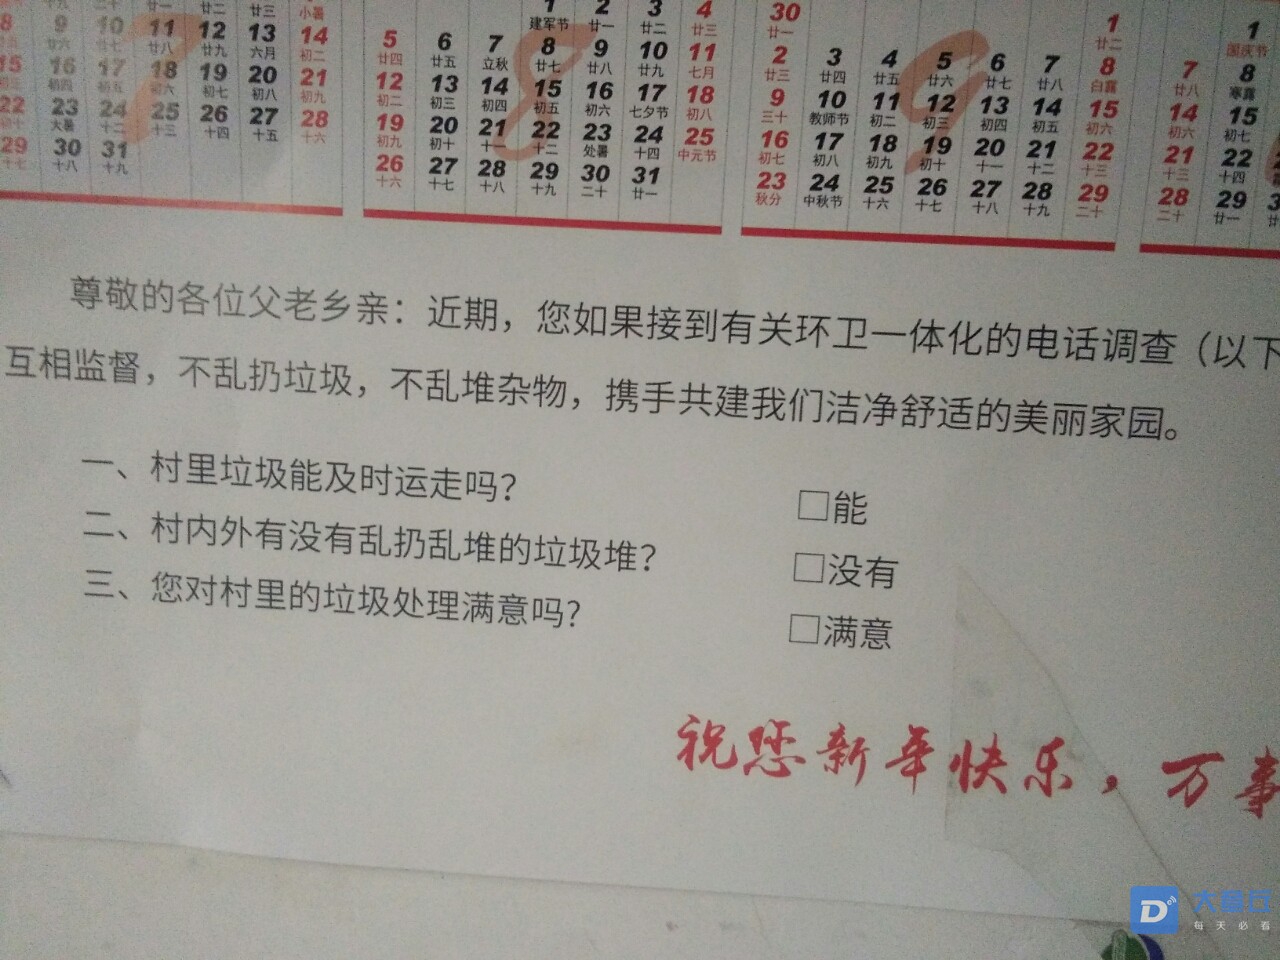 30 廿一
1 建军节 2 廿一 3 廿二 4 廿三
5 廿四 6 廿五 7 立秋 8 廿七 9 廿八 10 廿九 11 七月
12 初二 13 初三 14 初四 15 初五 16 初六 17 七夕节 18 初八
19 初九 20 初十 21 十一 22 十二 23 处暑 24 十四 25 中元节
26 十六 27 十七 28 十八 29 十九 30 二十 31 廿一
1 廿二
2 廿三 3 廿四 4 廿五 5 廿六 6 廿七 7 廿八 8 白露
9 三十 10 教师节 11 初二 12 初三 13 初四 14 初五 15 初六
16 初七 17 初八 18 初九 19 初十 20 十一 21 十二 22 十三
23 秋分 24 中秋节 25 十六 26 十七 27 十八 28 十九 29 二十
小暑
11 廿八 12 廿九 13 六月 14 初二
16 初四 17 初五 18 初六 19 初七 20 初八 21 初九
23 大暑 24 十二 25 十三 26 十四 27 十五 28 十六
29 十七 30 十八 31 十九
1 国庆节
7 廿八 8 寒露
14 初六 15 初七
21 十三 22 十四
28 二十 29 廿一
尊敬的各位父老乡亲：近期，您如果接到有关环卫一体化的电话调查（以下
互相监督，不乱扔垃圾，不乱堆杂物，携手共建我们洁净舒适的美丽家园。
一、村里垃圾能及时运走吗？ □能
二、村内外有没有乱扔乱堆的垃圾堆？ □没有
三、您对村里的垃圾处理满意吗？ □满意
祝您新年快乐，万事
每天必看